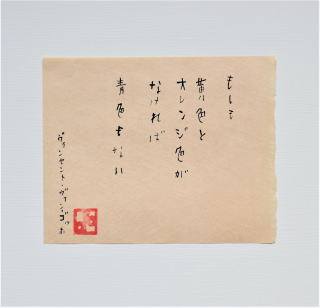 もしも
黄色と
オレンジ色が
なければ
青色もない
ヴィンセント・ヴァン・ゴッホ